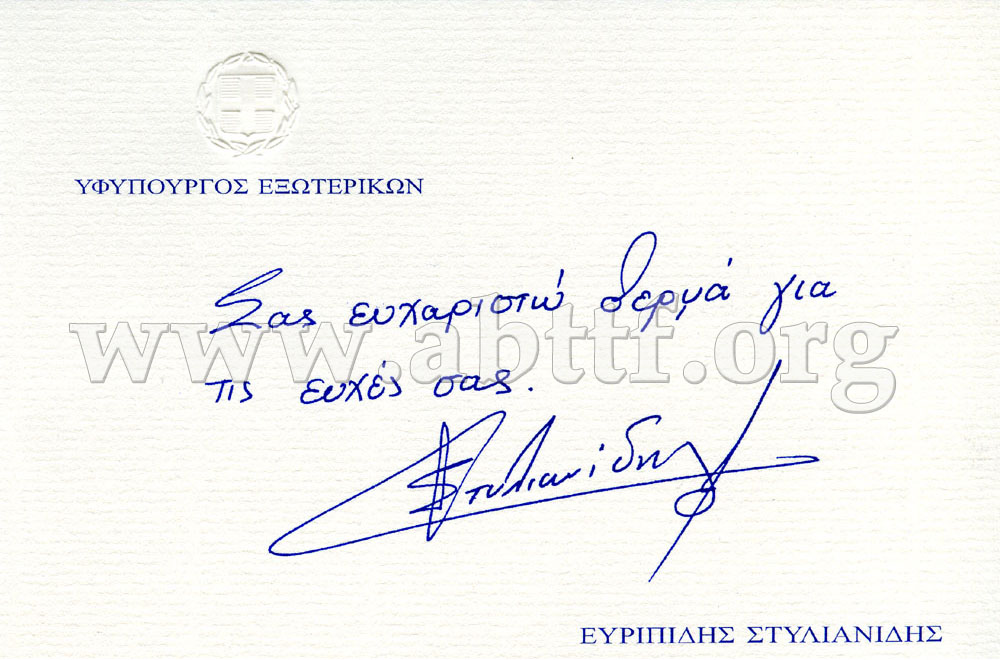 ΥΦΥΠΟΥΡΓΟΣ ΕΞΩΤΕΡΙΚΩΝ
Σας ευχαριστώ θερμά για
www.abttf.org
τις ευχές σας.
Στυλιανίδης
ΕΥΡΙΠΙΔΗΣ ΣΤΥΛΙΑΝΙΔΗΣ